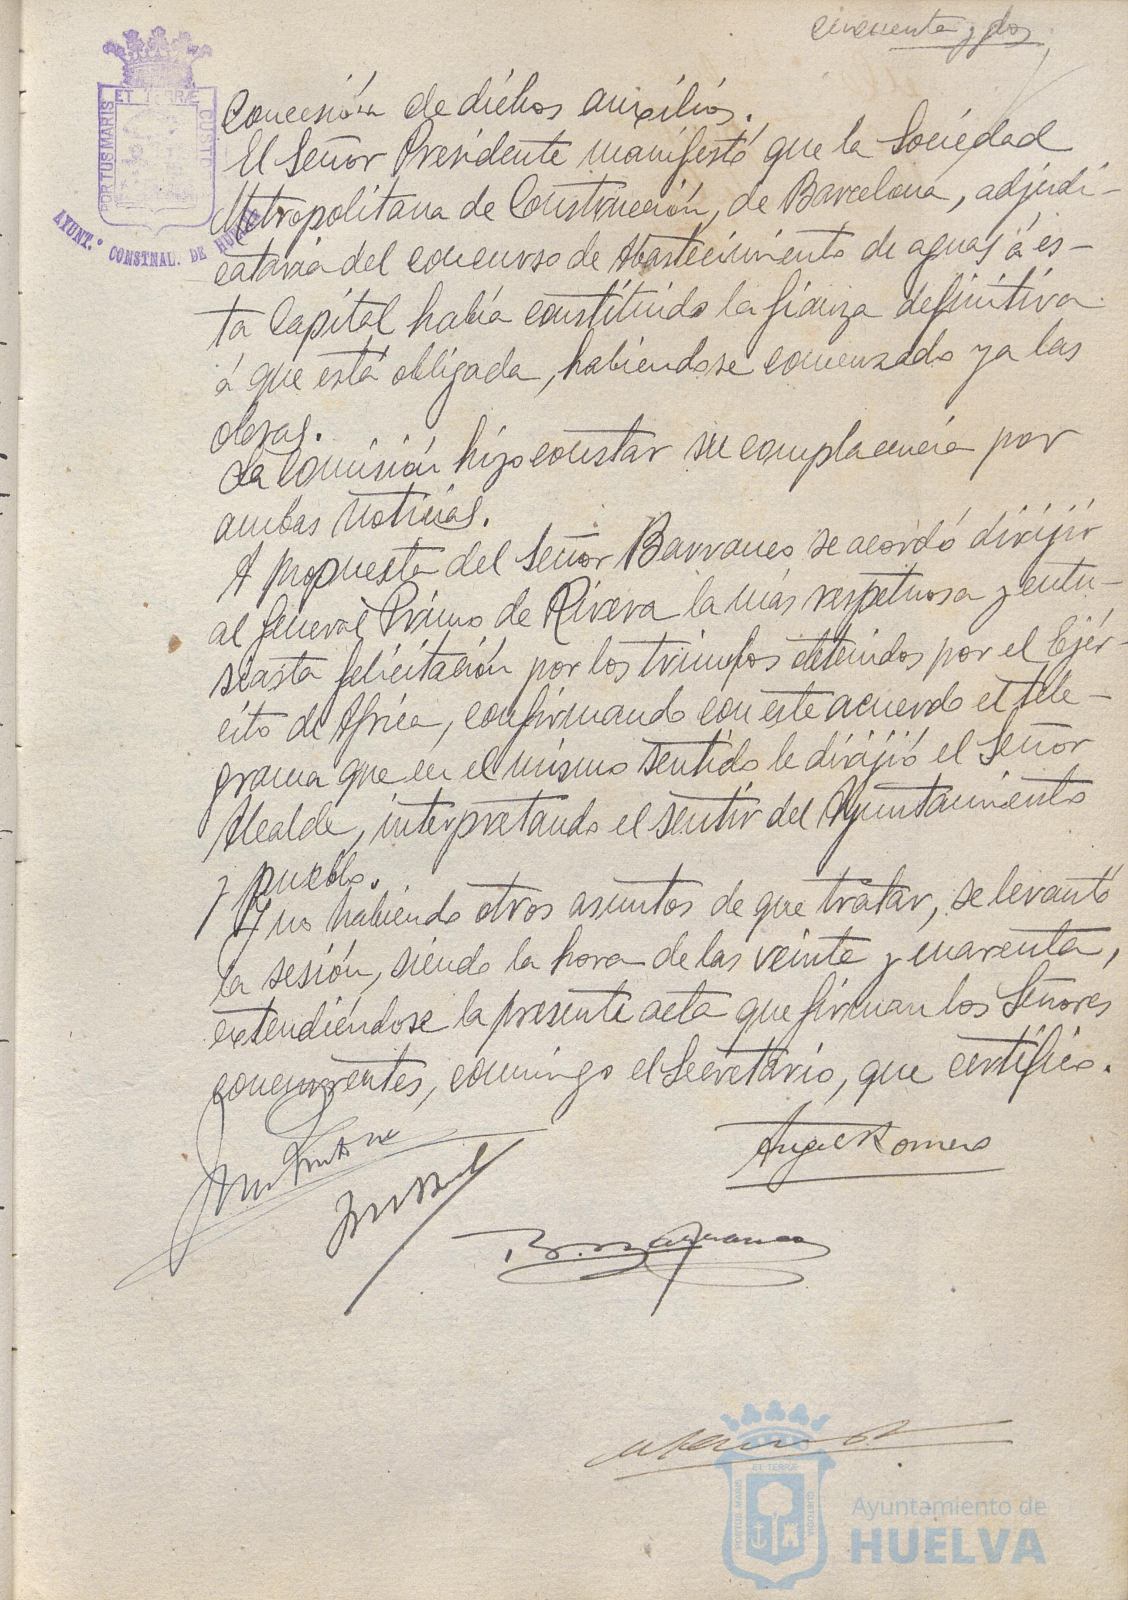 cincuenta y dos
ET TERRÆ
PORTUS MARIS
CUSTO
AYUNT.º CONSTNAL. DE HUELVA
Concesión de dichos auxilios.
El Señor Presidente manifestó que la Sociedad
Metropolitana de Construcción, de Barcelona, adjudi-
cataria del concurso de Abastecimiento de aguas á es-
ta Capital había constituido la fianza definitiva
á que está obligada, habiéndose comenzado ya las
obras.
La Comisión hizo constar su complacencia por
ambas noticias.
A propuesta del Señor Barranco se acordó dirijir
al General Primo de Rivera la más respetuosa y entu-
siasta felicitación por los triunfos obtenidos por el Ejér-
cito de Africa, confirmando con este acuerdo el tele-
grama que en el mismo sentido le dirijió el Señor
Alcalde, interpretando el sentir del Ayuntamiento
y pueblo.
Y no habiendo otros asuntos de que tratar, se levantó
la sesión, siendo la hora de las veinte y cuarenta,
extendiéndose la presente acta que firman los Señores
concurrentes, conmigo el Secretario, que certifico.
Angel Romero
B. Barranco
ET TERRÆ
PORTUS MARIS
CUSTODIA
Ayuntamiento de
HUELVA